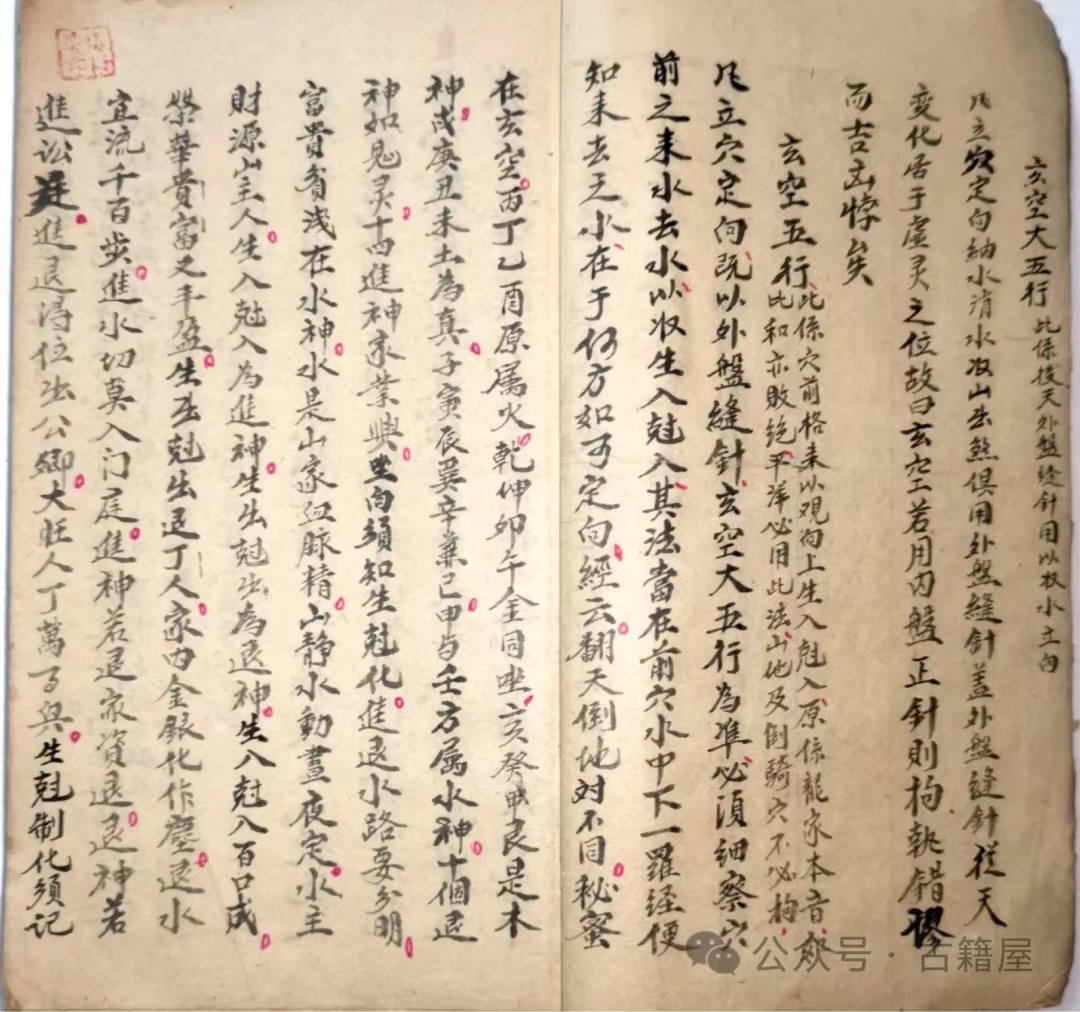 玄空大五行 此係後天外盤縫針用以收水立向
凡立穴定向納水消水收山出煞俱用外盤縫針盖外盤縫針從天
变化居于虚灵之位故曰玄空若用内盤正針則拘執错谬
而吉凶悖矣
玄空五行 此係穴前格来以观向上生入尅入原係龍家本音
比和亦敗绝平洋必用此法山地及倒騎穴不必拘
凡立穴定向既以外盤縫針玄空大五行為准必須细察穴
前之来水去水以收生入尅入其法當在前穴水中下一羅经便
知来去之水在于何方如可定向經云翻天倒地对不同秘蜜
在玄空丙丁乙酉原属火乾坤卯午金同坐亥癸甲艮是木
神戌庚丑未土為真子寅辰巽辛兼己申与壬方属水神十個退
神如鬼灵十四進神家業興坐向须知生尅化進退水路要分明
富貴貧浅在水神水是山家血脉精山静水動晝夜定水主
財源山主人生入尅入為進神生出尅出為退神生入尅入百口成
榮華貴富又丰盈生出尅出退丁人家内金銀化作塵退水
宜流千百步進水切莫入门庭進神若退家資退退神若
進訟廷進進退得位出公卿大旺人丁萬了興生尅制化须记
公众号·古籍屋